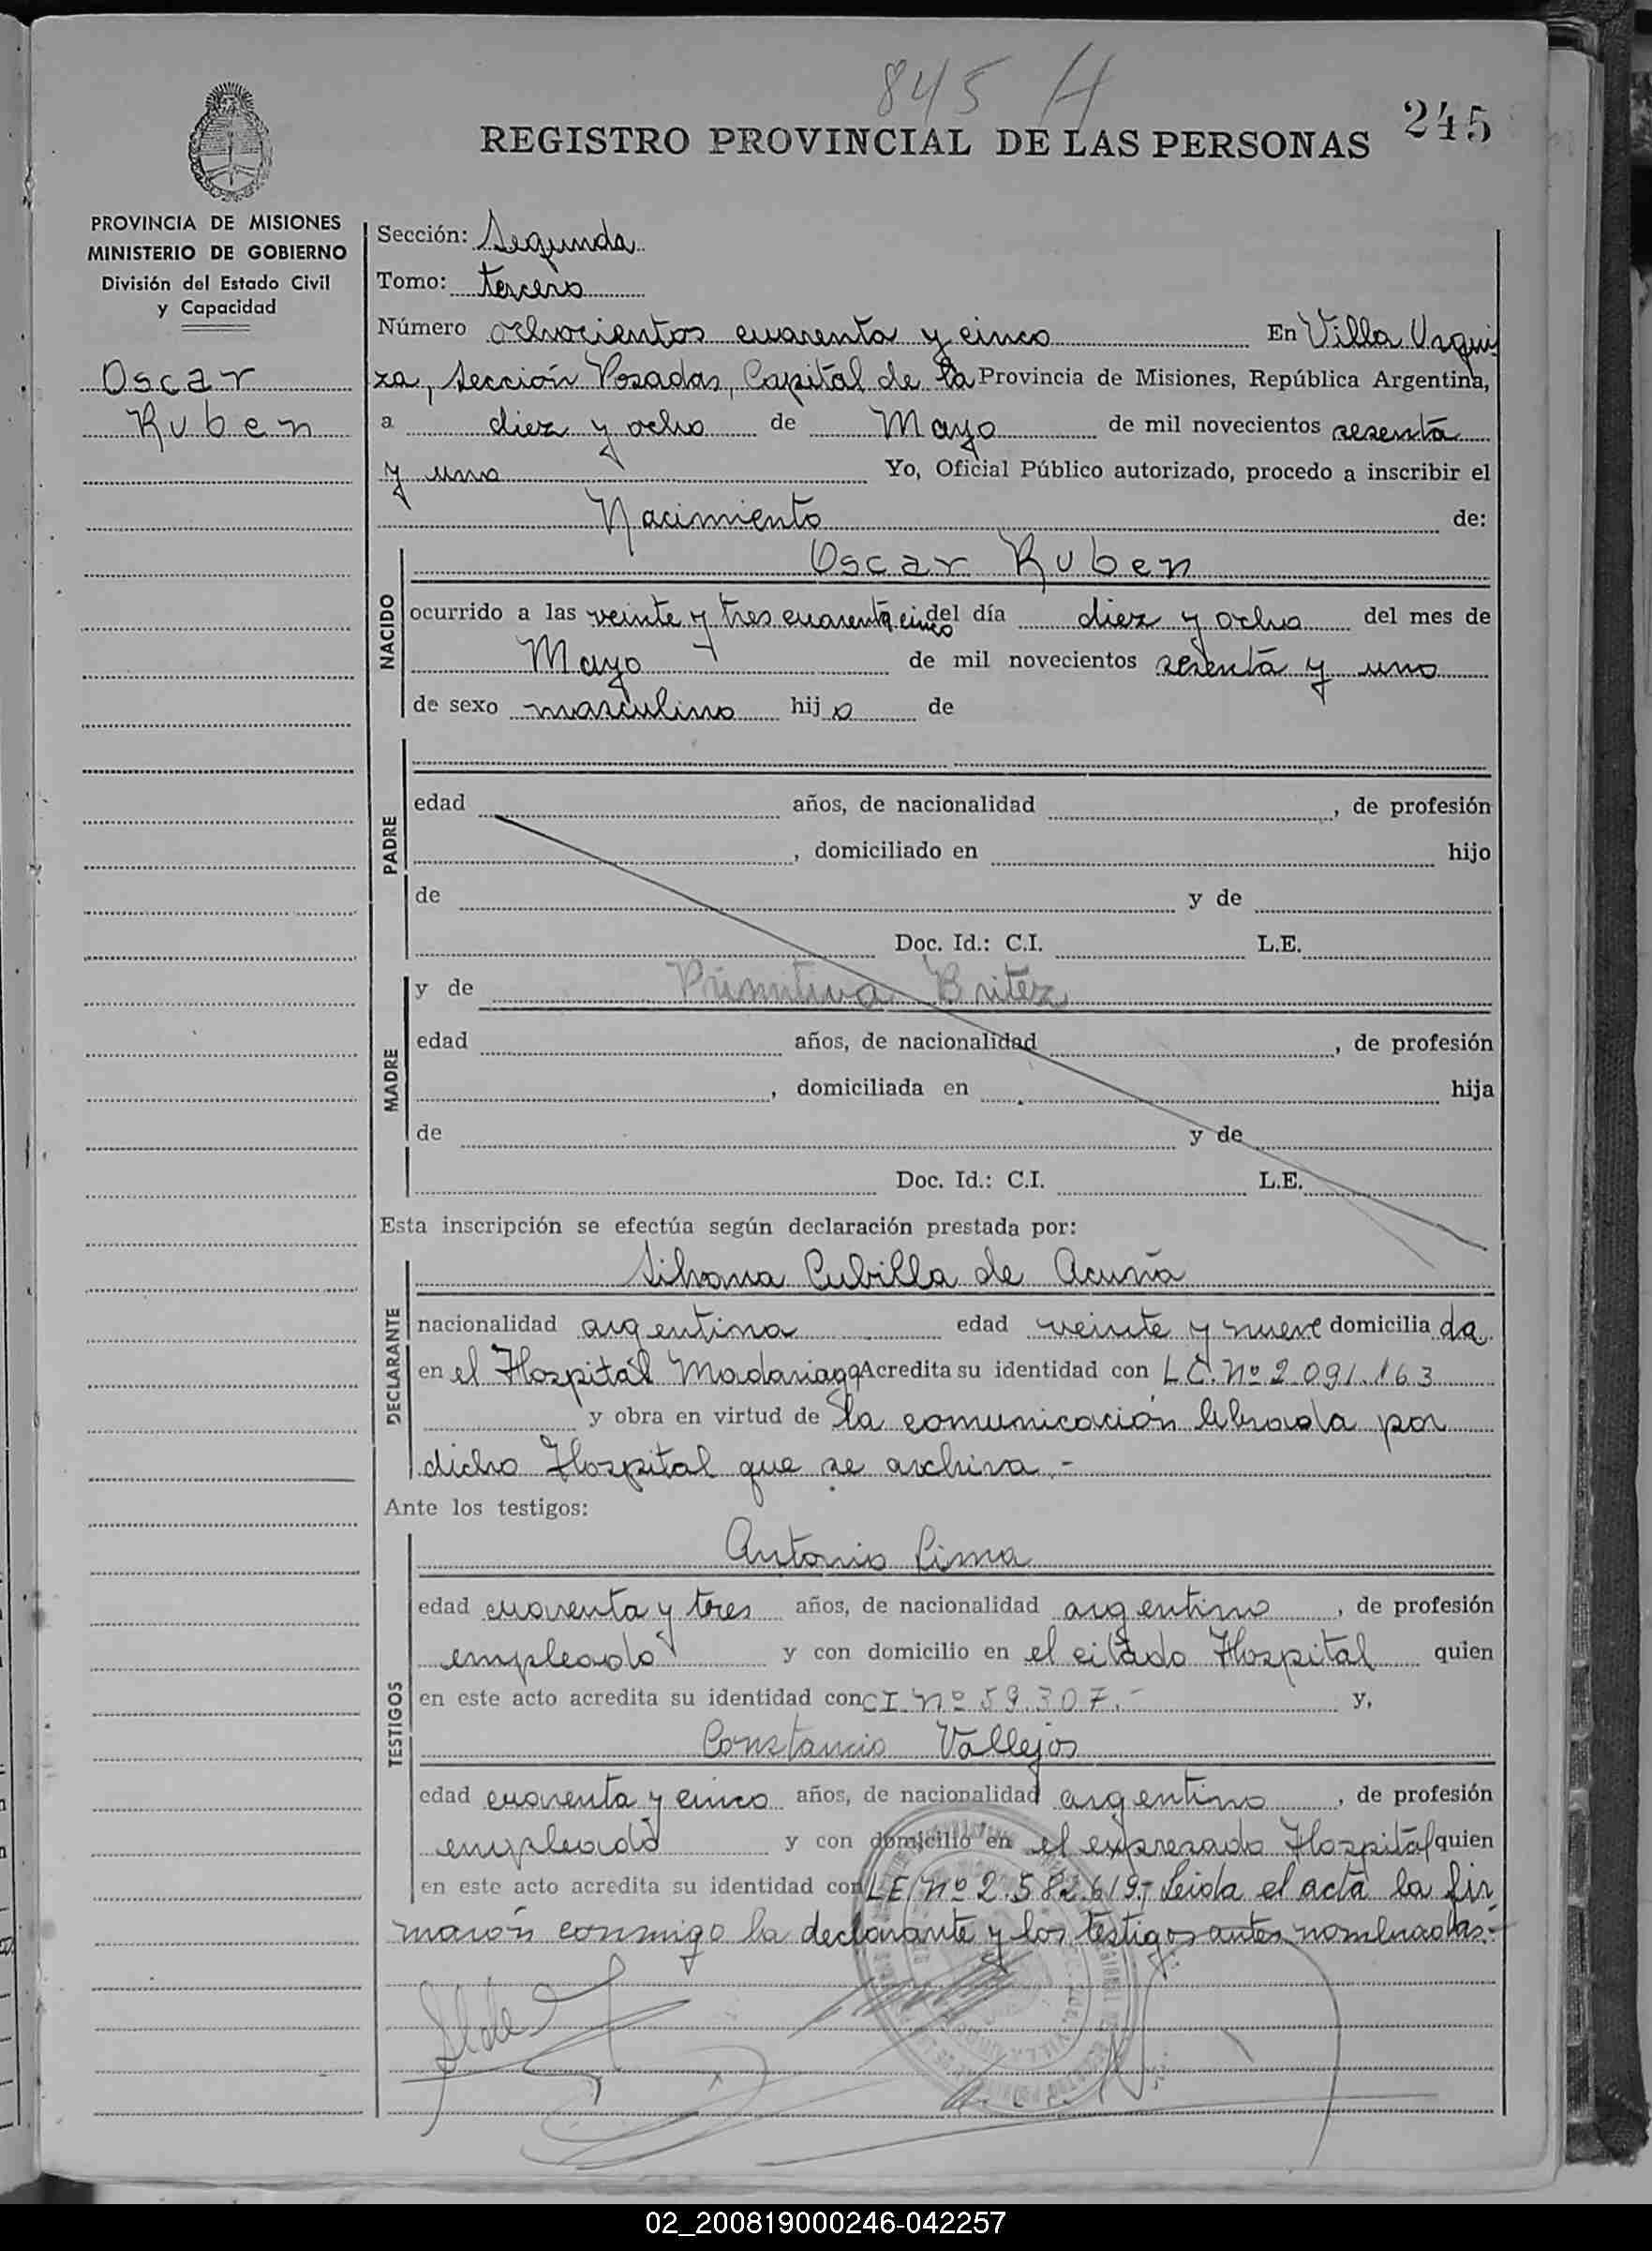 845 H
245
REGISTRO PROVINCIAL DE LAS PERSONAS
PROVINCIA DE MISIONES
MINISTERIO DE GOBIERNO
División del Estado Civil
y Capacidad
Oscar
Ruben
Sección: Segunda
Tomo: tercero
Número ochocientos cuarenta y cinco En Villa Urqui
za, Sección Posadas, Capital de la Provincia de Misiones, República Argentina,
a diez y ocho de Mayo de mil novecientos sesenta
y uno Yo, Oficial Público autorizado, procedo a inscribir el
Nacimiento de:
NACIDO
Oscar Ruben
ocurrido a las veinte y tres cuarenta cinco del día diez y ocho del mes de
Mayo de mil novecientos sesenta y uno
de sexo masculino hijo de
PADRE
edad años, de nacionalidad , de profesión
, domiciliado en hijo
de y de
Doc. Id.: C.I. L.E.
MADRE
y de Primitiva Britez
edad años, de nacionalidad , de profesión
, domiciliada en hija
de y de
Doc. Id.: C.I. L.E.
Esta inscripción se efectúa según declaración prestada por:
DECLARANTE
Silvana Cubilla de Acuña
nacionalidad argentina edad veinte y nueve domiciliada
en el Hospital Madariaga Acredita su identidad con L.C. Nº 2.091.163
y obra en virtud de la comunicación librada por
dicho Hospital que se archiva.-
Ante los testigos:
TESTIGOS
Antonio Lima
edad cuarenta y tres años, de nacionalidad argentino, de profesión
empleado y con domicilio en el citado Hospital quien
en este acto acredita su identidad con CI Nº 59.307.- y,
Constancio Vallejos
edad cuarenta y cinco años, de nacionalidad argentino, de profesión
empleado y con domicilio en el expresado Hospital quien
en este acto acredita su identidad con LE Nº 2.582.619.- Leida el acta la fir
maron conmigo la declarante y los testigos antes nombrados.-
02_200819000246-042257